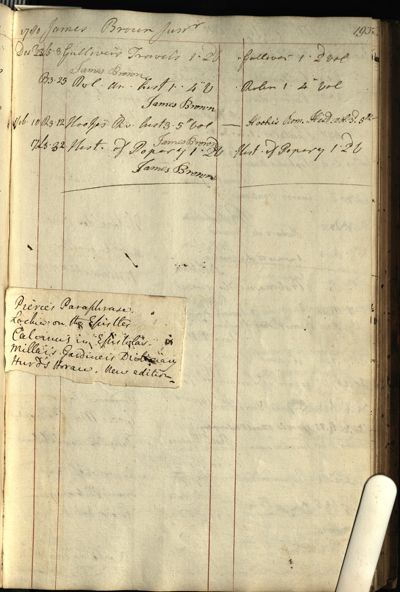 1780 James Brown Junr 193
Gullivers Travels 1. 2d V Gulliver 1. 2d Vol
James Brown
B3.23 Rol. an. hist 1. 4th V Rolin 1. 4th Vol
James Brown
Feb 10 R3.12 Hooke's Ro. hist 3. 5th Vol Hooke's Rom. Hist.
James Brown
Hist. of Popery 1. 2d V Hist. of Popery 1 2d V
James Brown
Pierce's Paraphrase
Locke on the Epistles
Calvinus in Epistolas.
Millers Gardiners Dictionary
Hurd's Horace. New edition